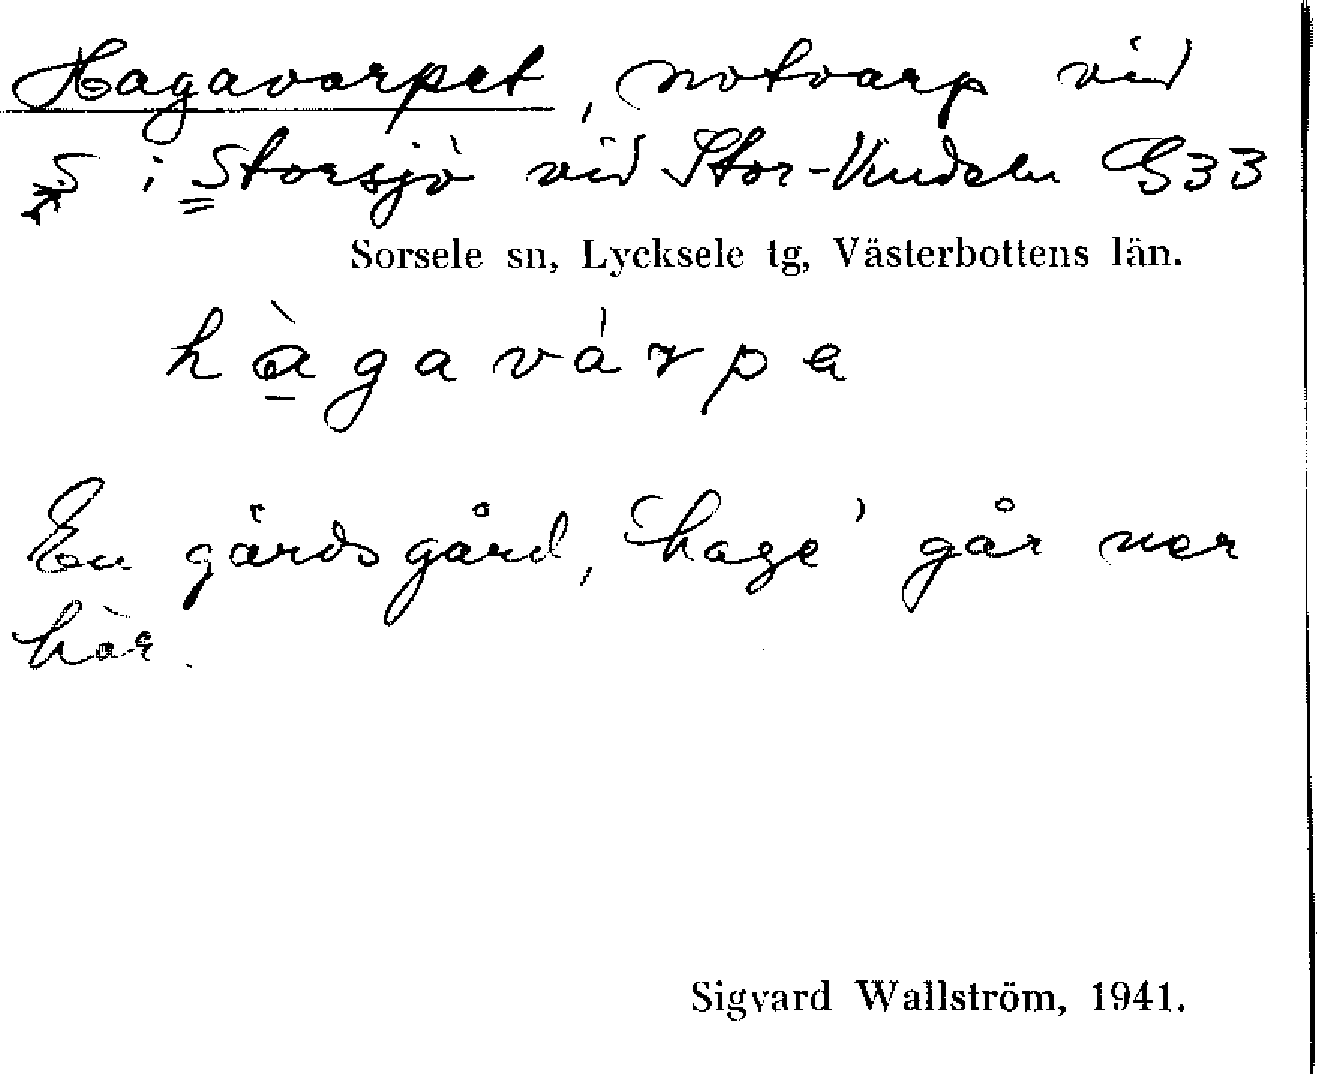 Hagavarpet, notvarp vid
S i Storsjö vid Stor-Vindeln G33
Sorsele sn, Lycksele tg, Västerbottens län.
hàgavárpa
En gärdsgård, 'hage' går ner
här.
Sigvard Wallström, 1941.